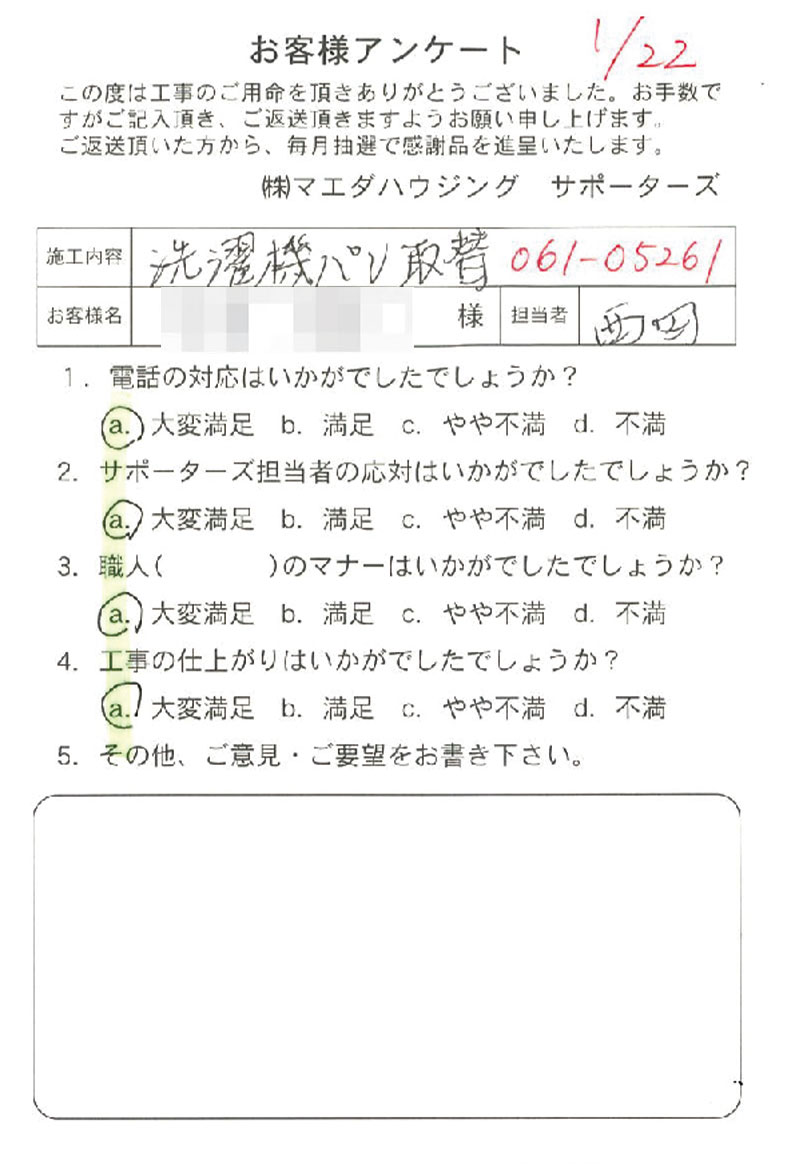 お客様アンケート 1/22
この度は工事のご用命を頂きありがとうございました。お手数で
すがご記入頂き、ご返送頂きますようお願い申し上げます。
ご返送頂いた方から、毎月抽選で感謝品を進呈いたします。
㈱マエダハウジング　サポーターズ
施工内容 洗濯機パン取替 061-05261
お客様名 様 担当者 西岡
1. 電話の対応はいかがでしたでしょうか？
a. 大変満足 b. 満足 c. やや不満 d. 不満
2. サポーターズ担当者の応対はいかがでしたでしょうか？
a. 大変満足 b. 満足 c. やや不満 d. 不満
3. 職人(　　　　)のマナーはいかがでしたでしょうか？
a. 大変満足 b. 満足 c. やや不満 d. 不満
4. 工事の仕上がりはいかがでしたでしょうか？
a. 大変満足 b. 満足 c. やや不満 d. 不満
5. その他、ご意見・ご要望をお書き下さい。